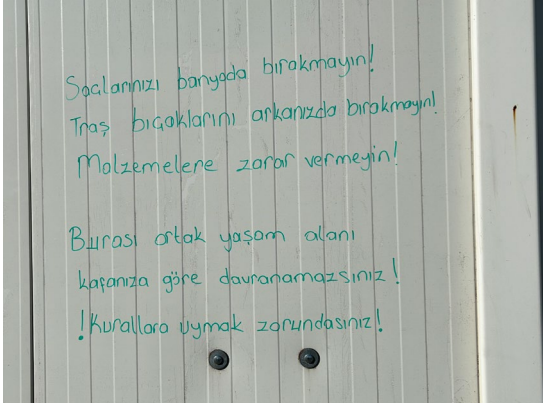 Saçlarınızı banyoda bırakmayın!
Traş bıçaklarını arkanızda bırakmayın!
Malzemelere zarar vermeyin!
Burası ortak yaşam alanı
kafanıza göre davranamazsınız!
!Kurallara uymak zorundasınız!